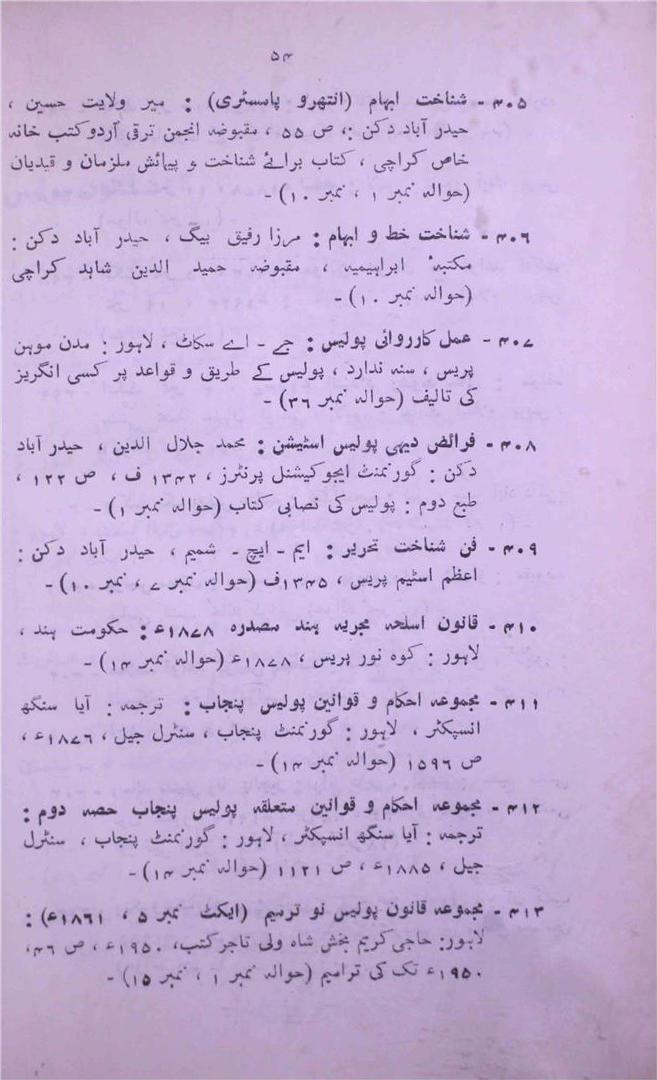 ۵۴
۴۰۵ - شناخت ابہام (انتھرو پامسٹری) : میر ولایت حسین ،
حیدر آباد دکن :، ص ۵۵، مقبوضہ انجمن ترقی اردو کتب خانہ
خاص کراچی ، کتاب برائے شناخت و پیمائش ملزمان و قیدیان
(حوالہ نمبر ۱ ، نمبر ۱۰) -
۴۰۶ - شناخت خط و ابہام : مرزا رفیق بیگ ، حیدر آباد دکن :
مکتبہٴ ابراہیمیہ ، مقبوضہ حمید الدین شاہد کراچی
(حوالہ نمبر ۱۰) -
۴۰۷ - عمل کارروائی پولیس : جے - اے سکاٹ ، لاہور : مدن موہن
پریس ، سنہ ندارد ، پولیس کے طریق و قواعد پر کسی انگریز
کی تالیف (حوالہ نمبر ۳۶) -
۴۰۸ - فرائض دیہی پولیس اسٹیشن : محمد جلال الدین ، حیدر آباد
دکن : گورنمنٹ ایجوکیشنل پرنٹرز ، ۱۳۴۲ ف ، ص ۱۲۲ ،
طبع دوم : پولیس کی نصابی کتاب (حوالہ نمبر ۱) -
۴۰۹ - فن شناخت تحریر : ایم - ایچ - شمیم ، حیدر آباد دکن :
اعظم اسٹیم پریس ، ۱۳۴۵ف (حوالہ نمبر ۷ ، نمبر ۱۰) -
۴۱۰ - قانون اسلحہ مجریہ ہند مصدرہ ۱۸۷۸ء : حکومت ہند ،
لاہور : کوہ نور پریس ، ۱۸۷۸ء (حوالہ نمبر ۱۴) -
۴۱۱ - مجموعہ احکام و قوانین پولیس پنجاب : ترجمہ : آیا سنگھ
انسپکٹر ، لاہور : گورنمنٹ پنجاب ، سنٹرل جیل ، ۱۸۷۶ء ،
ص ۱۵۹۶ (حوالہ نمبر ۱۴) -
۴۱۲ - مجموعہ احکام و قوانین متعلقہ پولیس پنجاب حصہ دوم :
ترجمہ : آیا سنگھ انسپکٹر ، لاہور : گورنمنٹ پنجاب ، سنٹرل
جیل ، ۱۸۸۵ء ، ص ۱۱۲۱ (حوالہ نمبر ۱۴) -
۴۱۳ - مجموعہ قانون پولیس نو ترمیم (ایکٹ نمبر ۵ ، ۱۸۶۱ء) :
لاہور : حاجی کریم بخش شاہ ولی تاجر کتب، ۱۹۵۰ء ، ص ۴۶،
۱۹۵۰ء تک کی ترامیم (حوالہ نمبر ۱ ، نمبر ۱۵) -